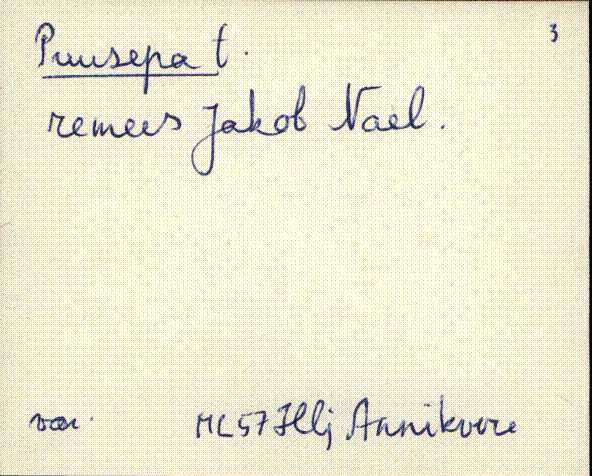 3
Puusepa t.
remees Jakob Nael.
var. ML57 Hlj Annikvere